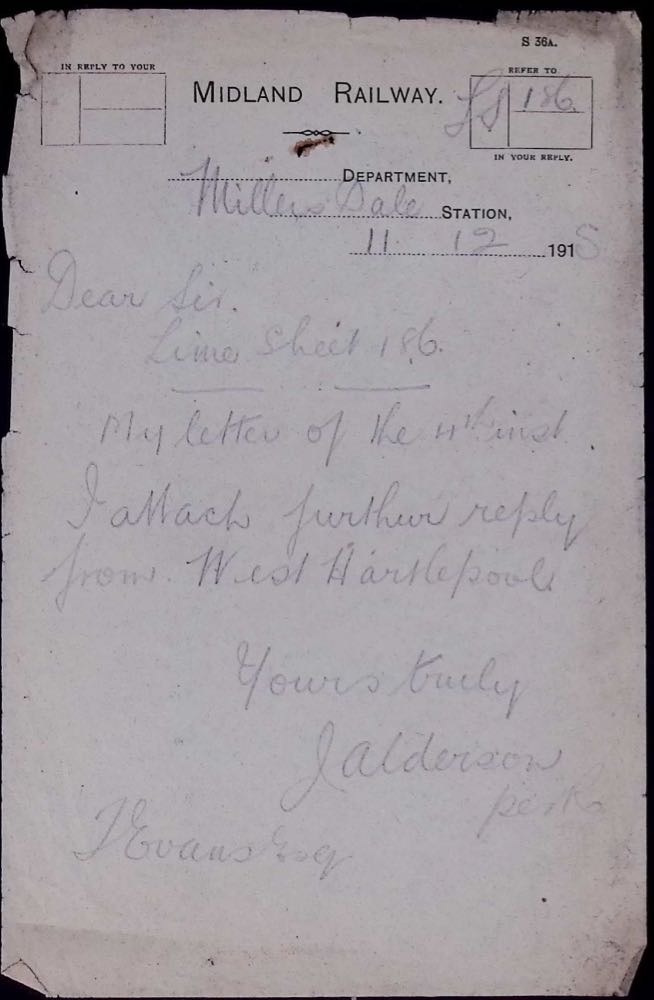 S 36A.
IN REPLY TO YOUR
REFER TO
MIDLAND RAILWAY.
LS 186.
IN YOUR REPLY.
DEPARTMENT,
Millers Dale STATION,
11 12 1915
Dear Sir.
Lime Sheet 186.
My letter of the 4th inst.
I attach further reply
from West Hartlepools
Yours truly
J Alderson
per
J Evans Esq